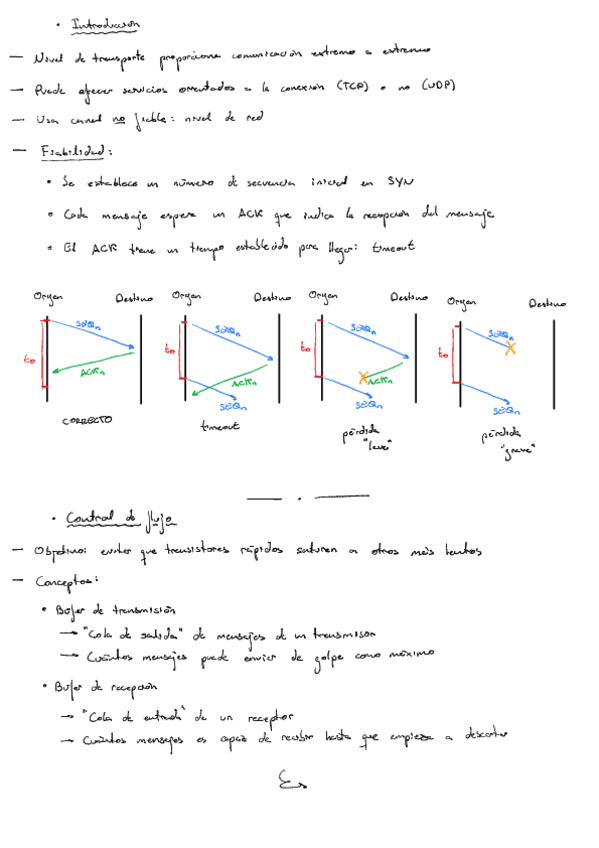 · Introducción
— Nivel de transporte proporciona comunicación extremo a extremo
— Puede ofrecer servicios orientados a la conexión (TCP) o no (UDP)
— Usa canal no fiable: nivel de red
— Fiabilidad:
• Se establece un número de secuencia inicial en SYN
• Cada mensaje espera un ACK que indica la recepción del mensaje
• El ACK tiene un tiempo establecido para llegar: timeout
Origen Destino Origen Destino Origen Destino Origen Destino
SEQn SEQn SEQn SEQn
to to to to
ACKn ACKn ACKn
SEQn SEQn SEQn
CORRECTO timeout pérdida "leve" pérdida "grave"
· Control de flujo
— Objetivo: evitar que transistores rápidos saturen a otros más lentos
— Conceptos:
• Bufer de transmisión
→ "Cola de salida" de mensajes de un transmisor
→ Cuántos mensajes puede enviar de golpe como máximo
• Bufer de recepción
→ "Cola de entrada" de un receptor
→ Cuántos mensajes es capaz de recibir hasta que empieza a descartar